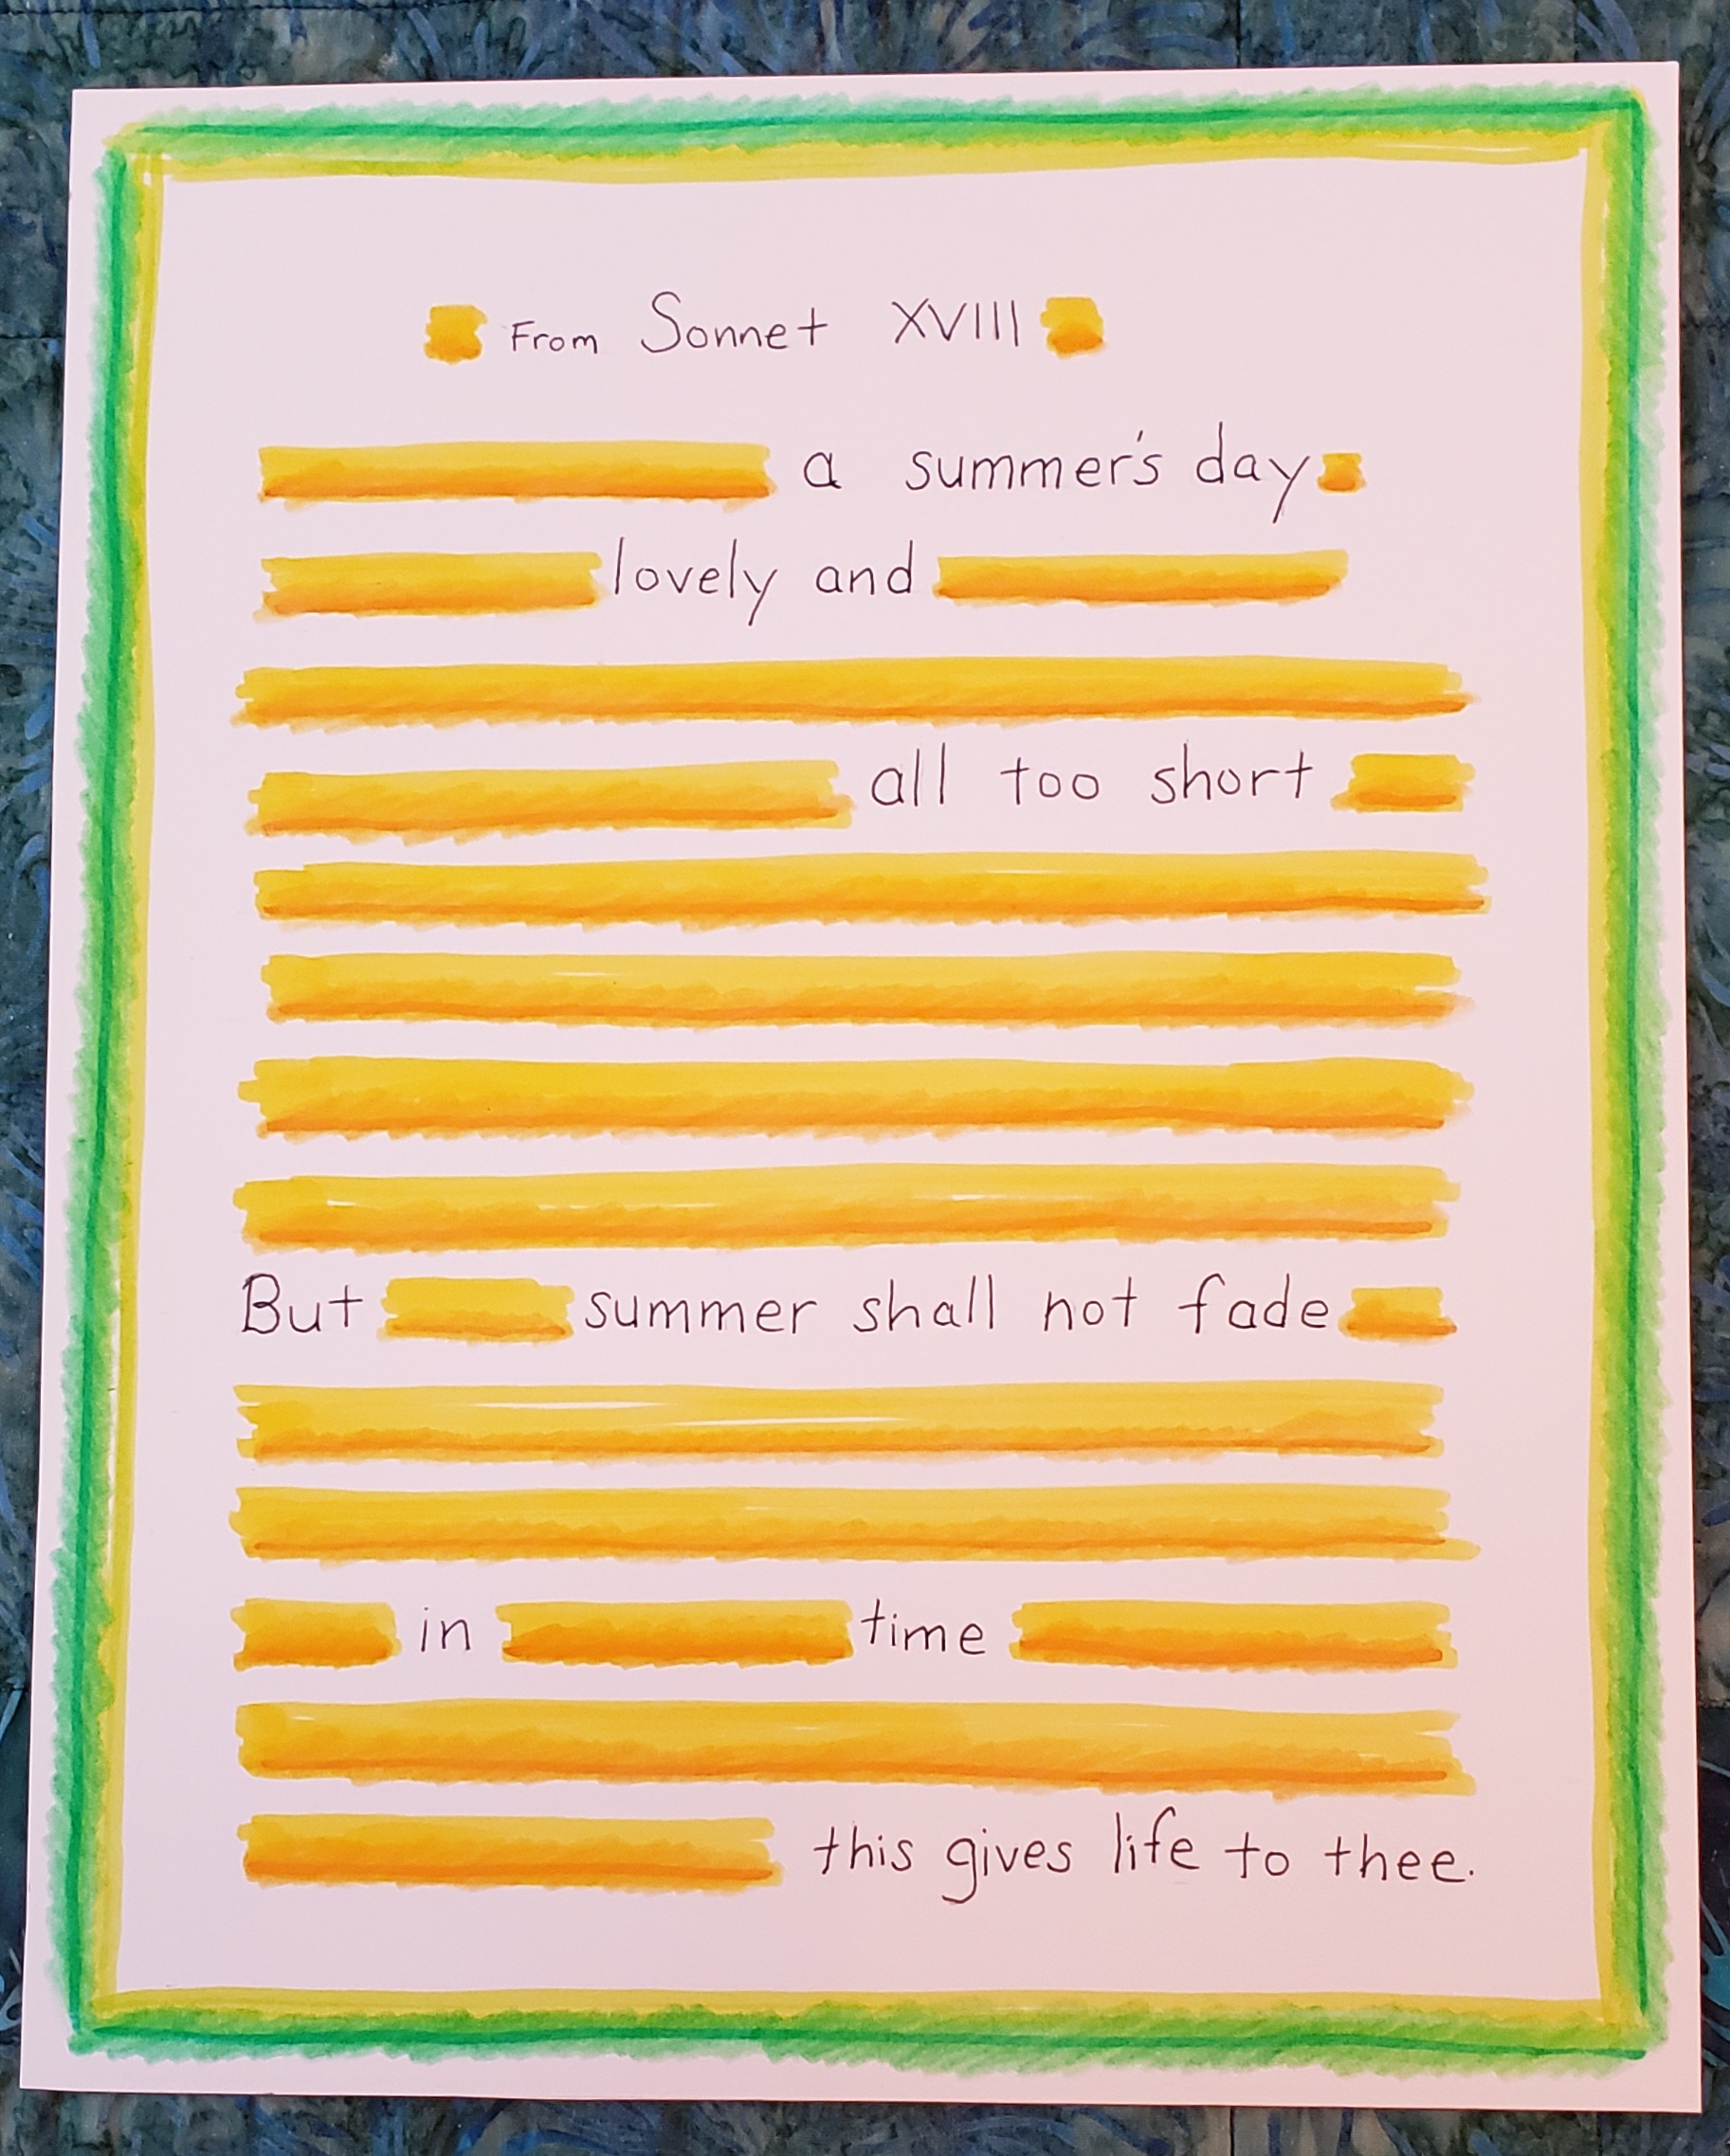 From Sonnet XVIII
a summer's day
lovely and
all too short
But summer shall not fade
in time
this gives life to thee.